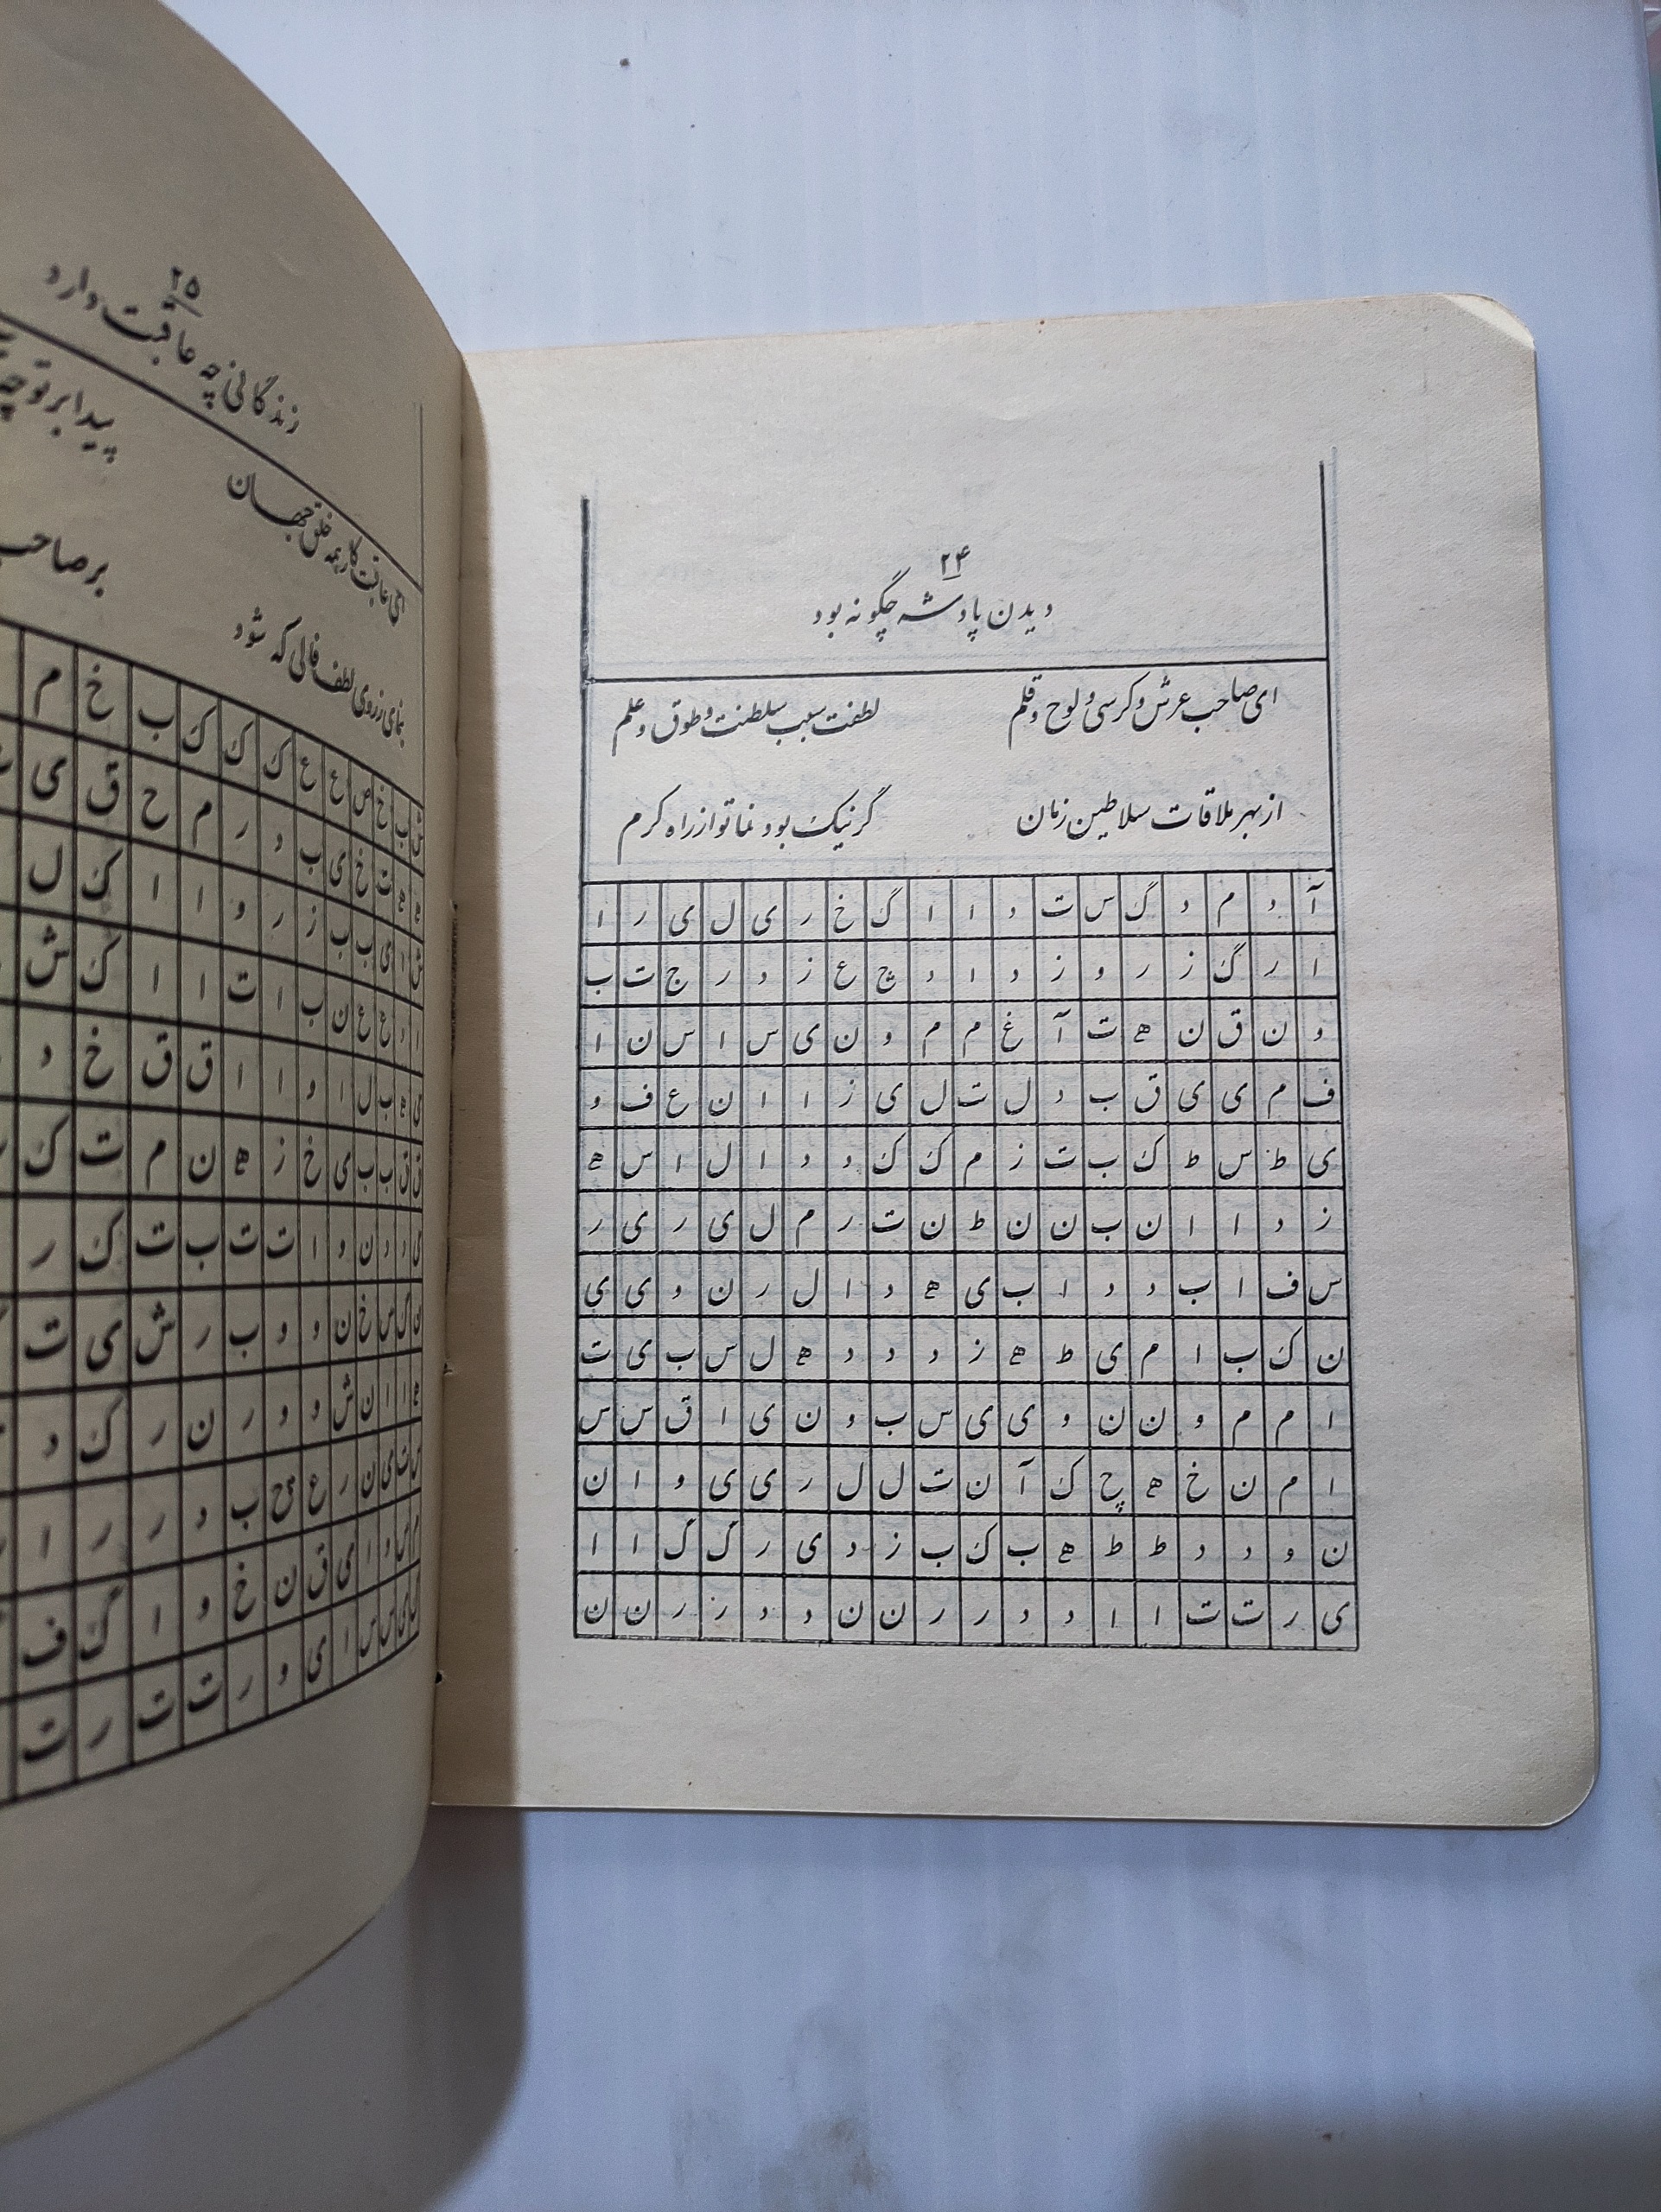 ۲۴
دیدن پادشه چگونه بود
ای صاحب عرش و کرسی و لوح و قلم لطفت سبب سلطنت و طوق و علم
از بهر ملاقات سلاطین زمان گر نیک بود نما تو از راه کرم
آ د م د گ س ت د ا ا گ خ ر ی ل ی ر ا
ا ر گ ز ر و ز د ا د چ ع ز د ر ج ت ب
و ن ق ن ه ت آ غ م م و ن ی س ا س ن ا
ف م ی ی ق ب د ل ت ل ی ز ا ا ن ع ف و
ی ط س ط ک ب ت ز م ک ک د د ا ل ا س ه
ز د ا ا ن ب ن ن ط ن ت ر م ل ی ر ی ر
س ف ا ب د د ا ب ی ه د ا ل ر ن و ی ی
ن ک ب ا م ی ط ه ز د د د ه ل س ب ی ت
ا م م و ن ن و ی ی س ب و ن ی ا ق س س
ا م ن خ ه چ ک آ ن ت ل ل ر ی ی و ا ن
ن و د د ط ط ه ب ک ب ز د ی ر گ گ ا ا
ی ر ت ت ا ا د د ر ر ن ن د د ر ر ن ن
۲۵
زندگانی چه عاقبت دارد
ای عاقبت کار همه خلق جهان پیدا بر تو
بنمای ز روی لطف فالی که شود بر صاحب
خ ص ع ع ک ک ک ب خ م
ت خ ی ب د ر م ح ق ی
ی ب ب ز ر و ا ا ک ل
ع ن ب ا ت ا ا ک ش
ب ل ا و ا ا ق ق خ د
ب ب ی خ ز ه ن م ت ک
د ن و ا ت ت ب ت ک ر
س خ ن د و ب ر ش ی ت
ا ن ش د و ر ن ر ک د
ی ن ر ع ب د ر ر ا
ا ی ق ن خ و ا گ ف
س ا ی و ر ت ت ر ت